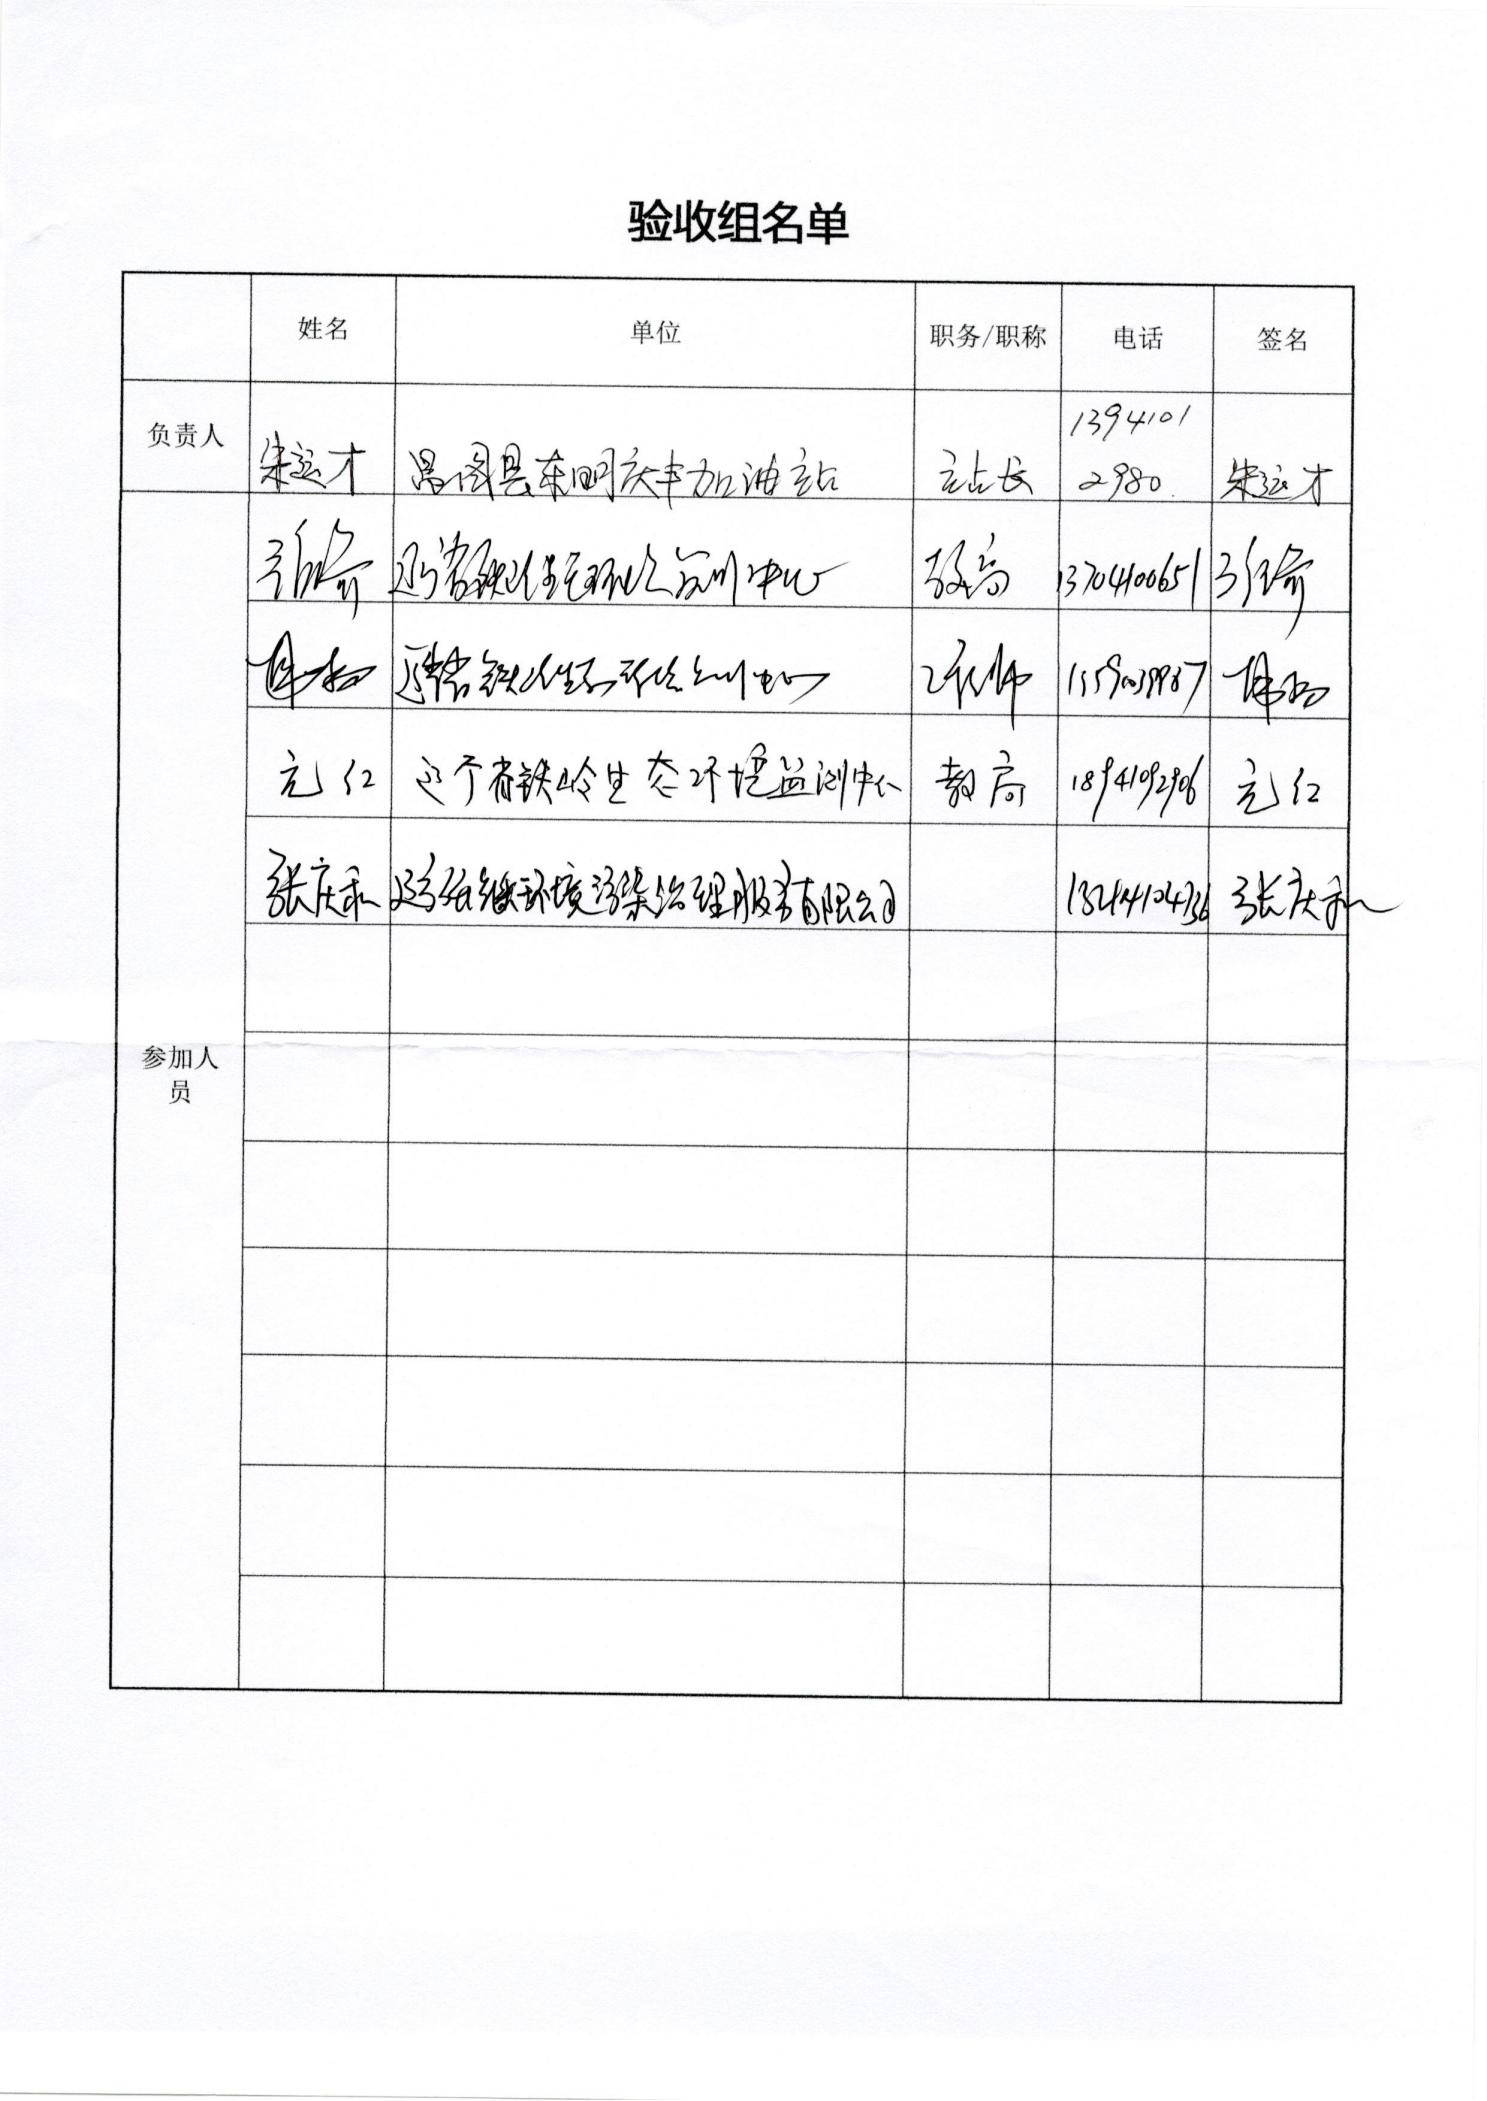 验收组名单
姓名 单位 职务/职称 电话 签名
负责人 朱运才 昌图县东明庆丰加油站 站长 1394101
2980 朱运才
辽宁省铁岭生态环境监测中心 教高 13704100651
辽宁省铁岭生态环境监测中心 工程师
元红 辽宁省铁岭生态环境监测中心 教高 18941092906 元红
张庆和 环境污染治理服务有限公司 张庆和
参加人
员